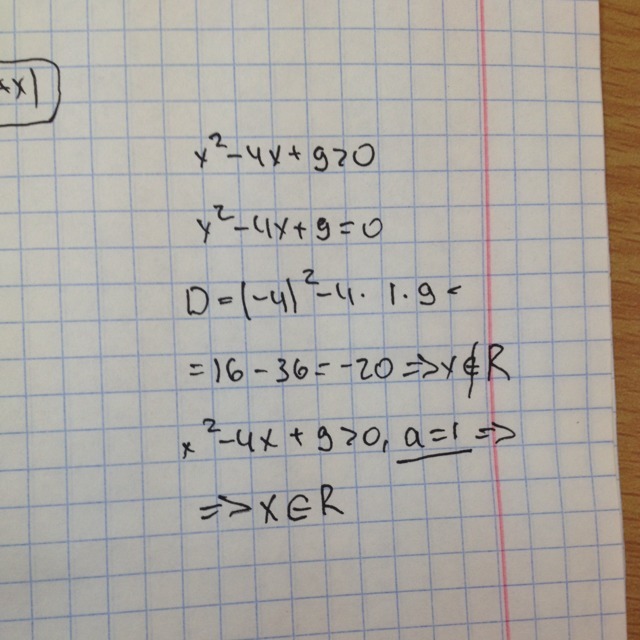 xx|
x²-4x+9>0
x²-4x+9=0
D=(-4)²-4·1·9=
=16-36=-20=>x∉R
x²-4x+9>0, a=1=>
=>x∈R